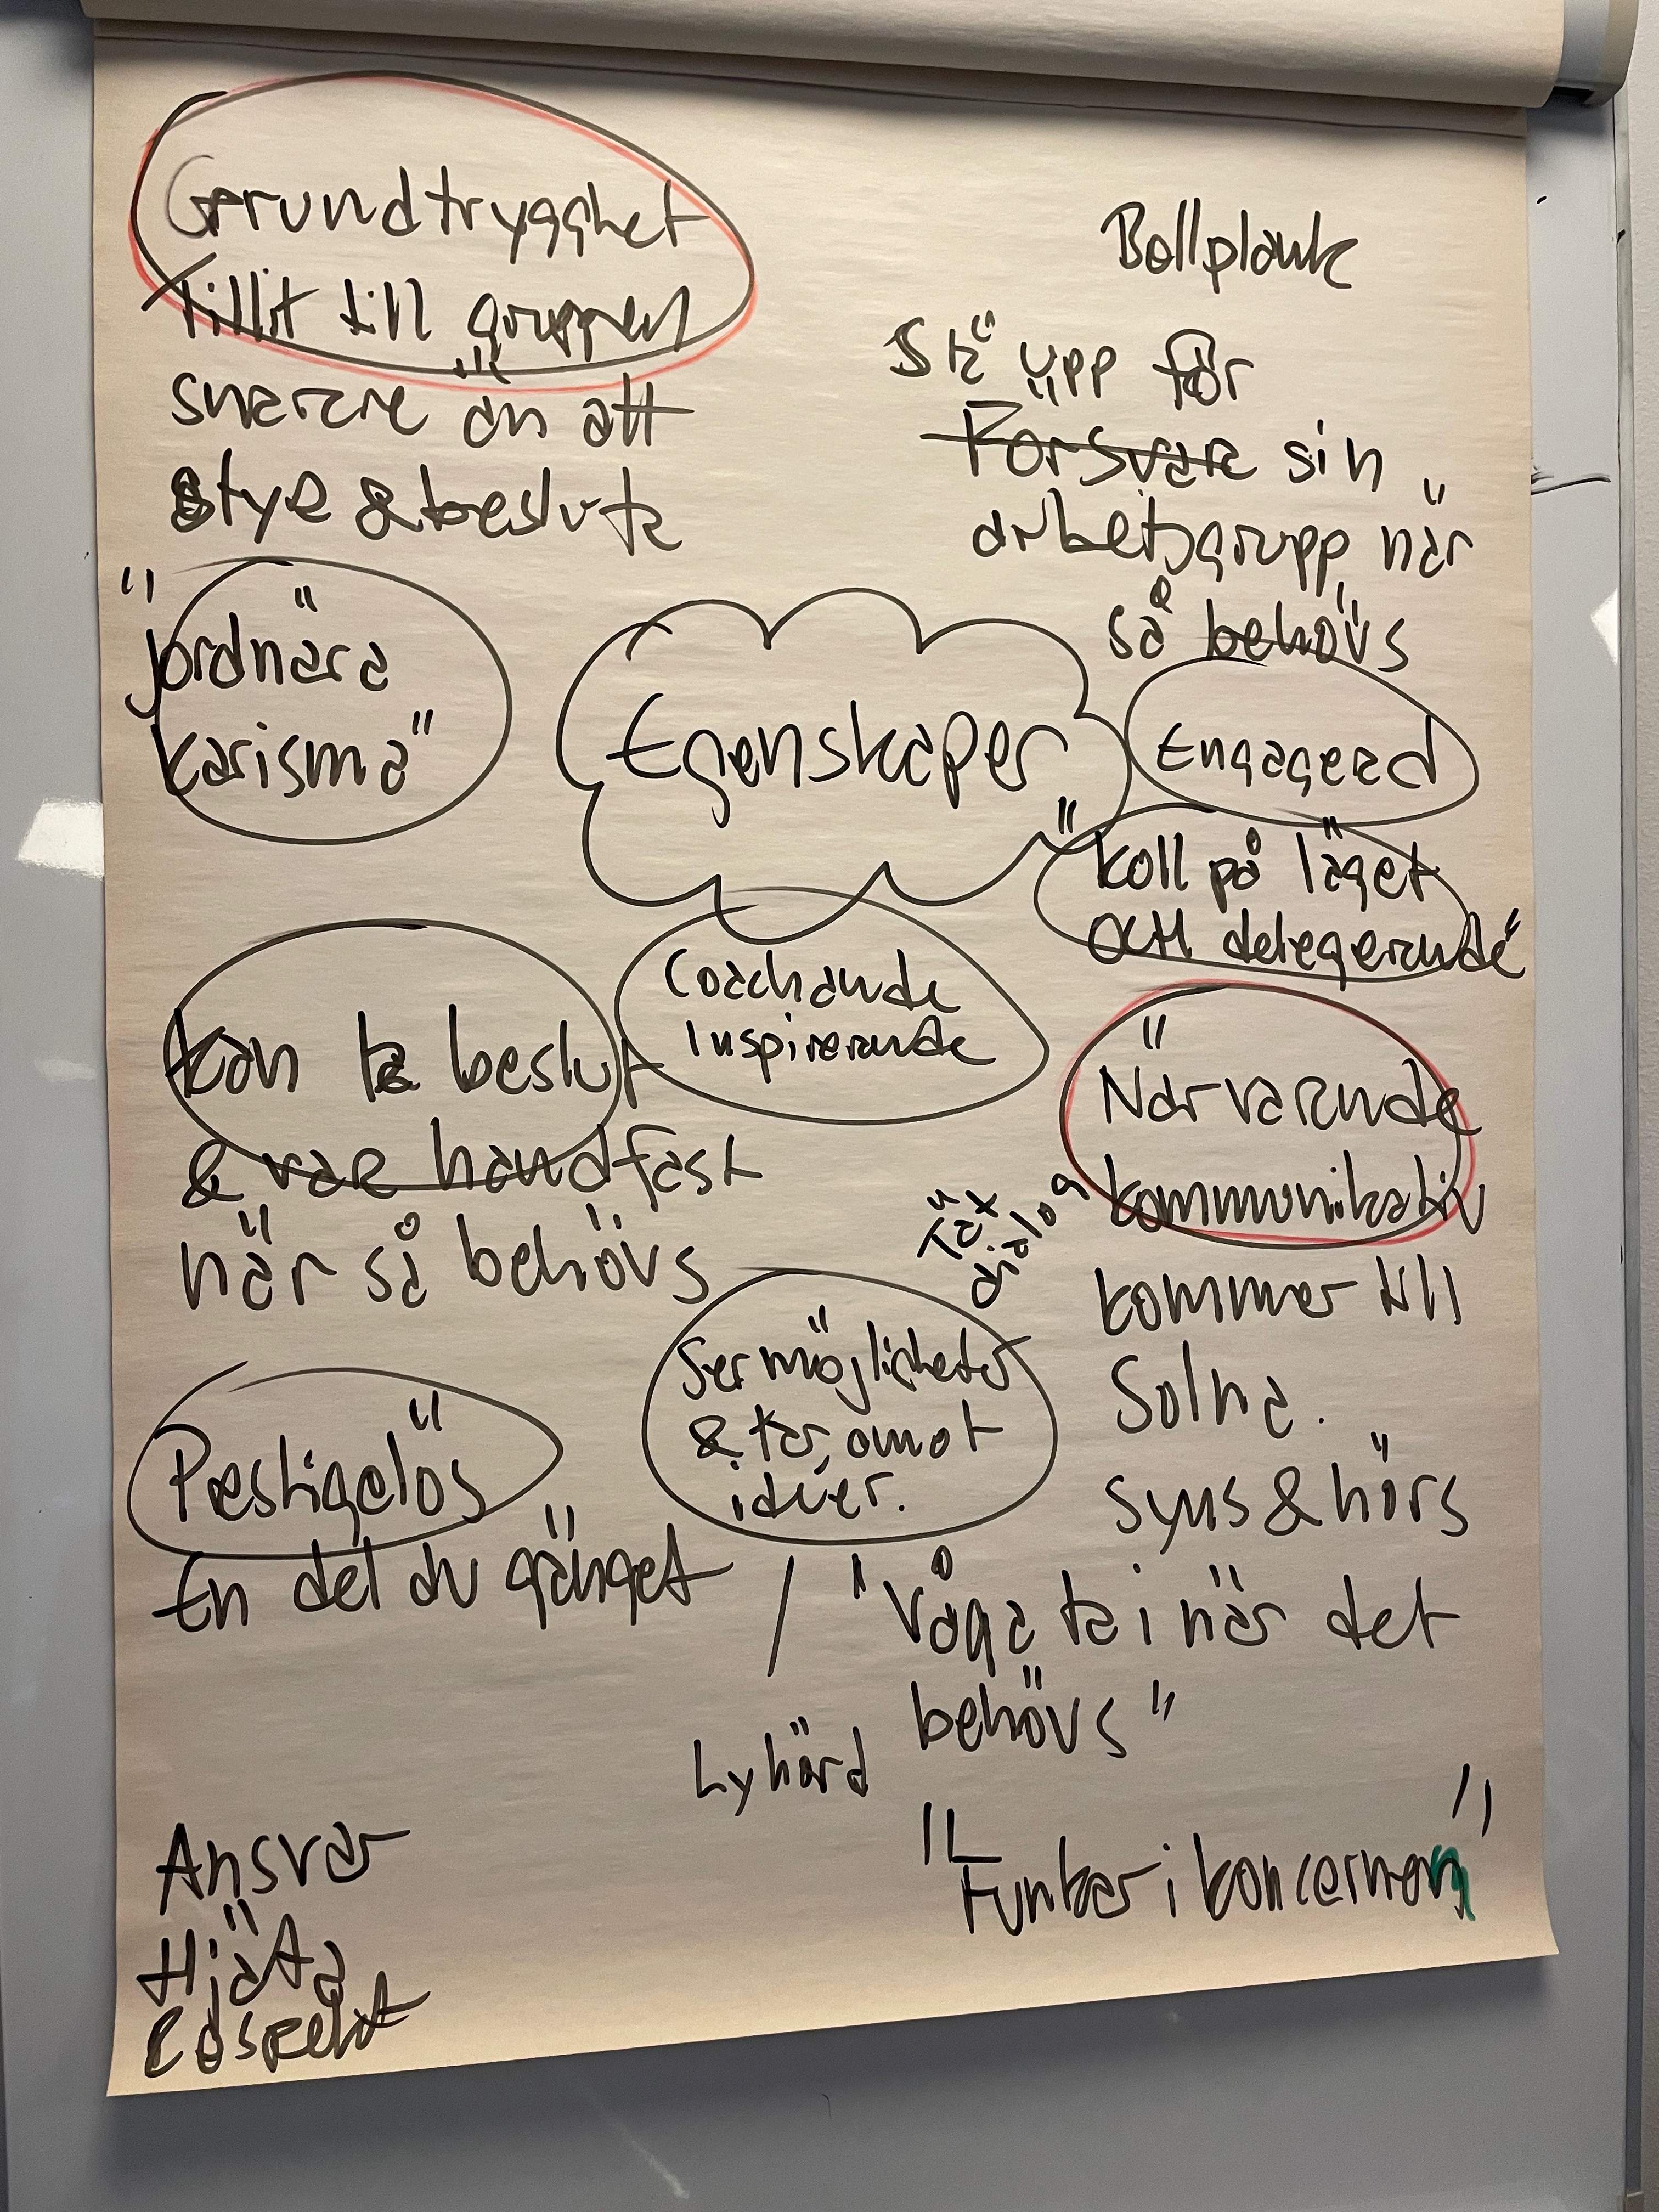 Grundtrygghet
Tillit till gruppen
snarare än att
styra & besluta
Bollplank
Stå upp för
Försvara sin
arbetsgrupp när
så behövs
"jordnära
karisma"
Egenskaper
Engagerad
"koll på läget
och delegerande"
Coachande
Inspirerande
kan ta beslut
& var handfast
när så behövs
Närvarande
kommunikativ
kommer till
Solna.
syns & hörs
Tät
dialog
Ser möjligheter
& tar emot
idéer.
Prestigelös
En del av gänget
"Våga ta i när det
behövs"
Lyhörd
"Funkar i koncernen"
Ansvar
Hjärta